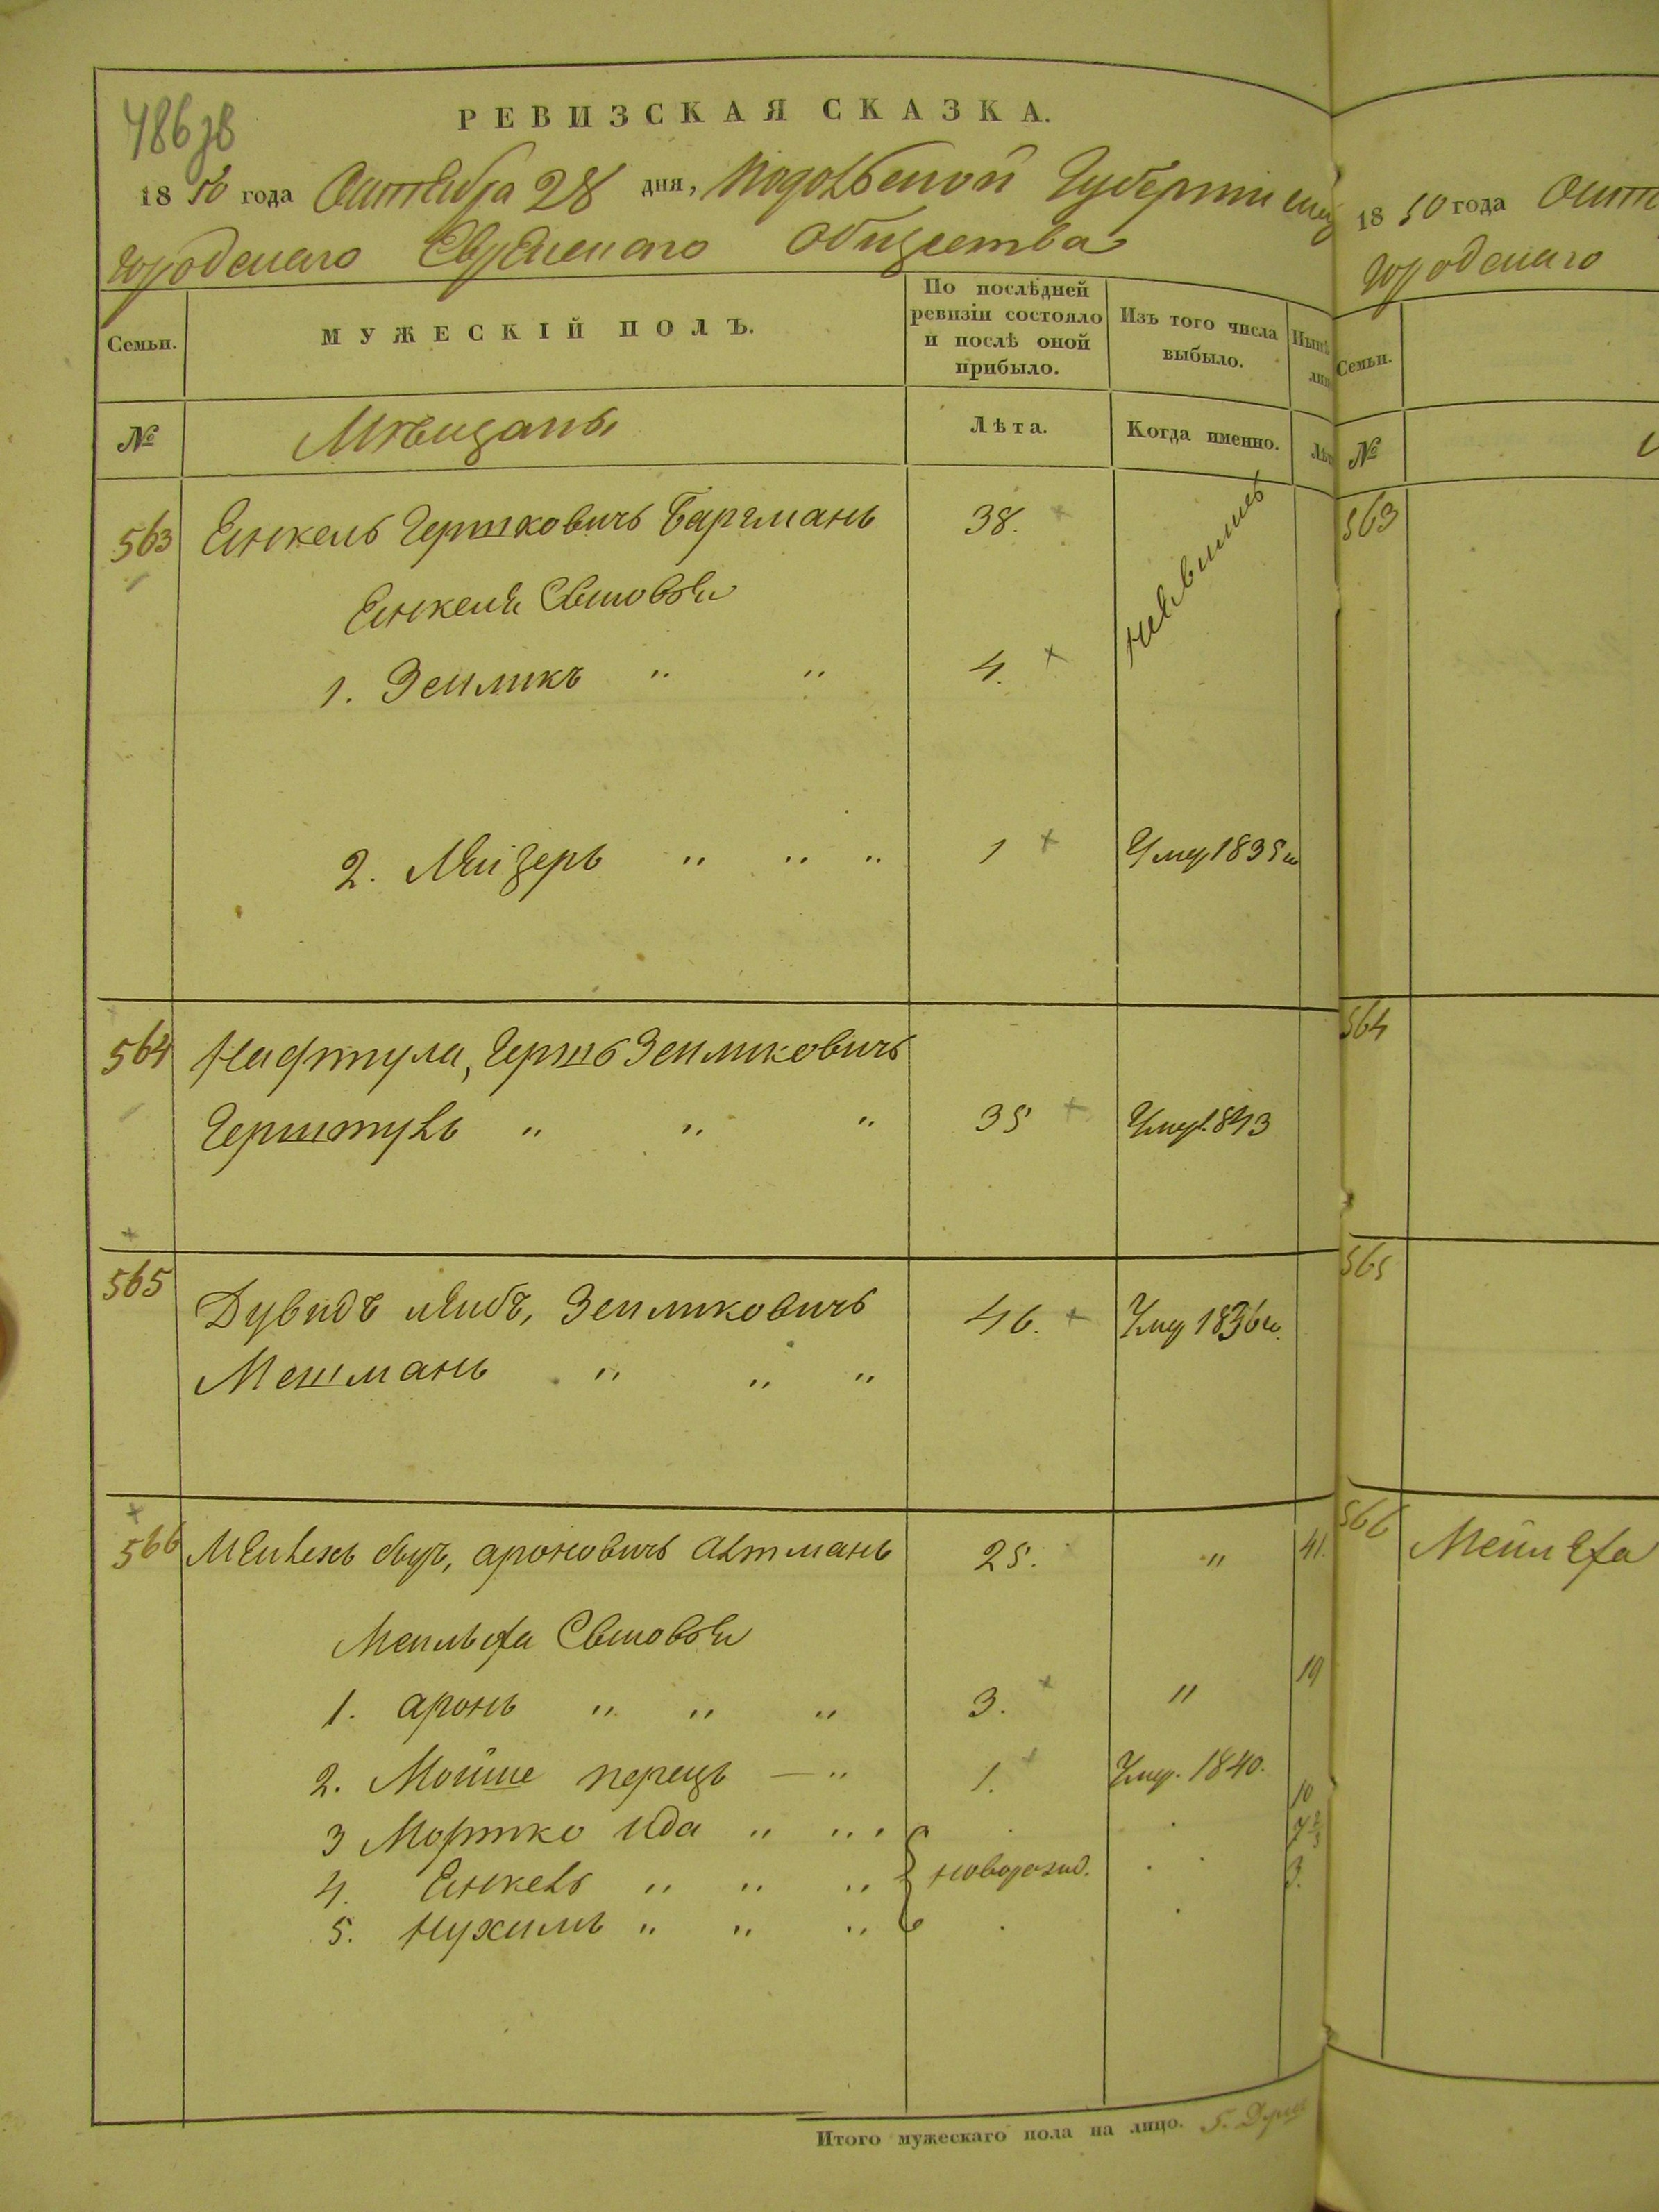 486 зв
РЕВИЗСКАЯ СКАЗКА.
1850 года Октября 28 дня, Подольской Губернии
городскаго Еврейскаго Общества
Семьи.
МУЖЕСКІЙ ПОЛЪ.
По послѣдней
ревизіи состояло
и послѣ оной
прибыло.
Изъ того числа
выбыло.
№
Мѣщане
Лѣта.
Когда именно.
563 Еинкель Гершковичъ Баргманъ 38.
Еинкеля Сыновья
1. Зейликъ " " 4.
2. Лейзеръ " " " 1 Умер 1835 го
564 Нафтула, Гершъ Зейликовичъ
Герштулъ " " " 35 Умер. 843
565 Дувидъ Лейбъ, Зейликовичъ 46. Умер 1836 го.
Мешманъ " " "
566 Мейлехъ ароновичъ Алтманъ 25. " 41.
Мейлеха Сыновья
1. аронъ " " " 3. " 19
2. Мойше перецъ — " 1. Умер. 1840.
3 Мортко Ида " " " 10
4. Еинкель " " " новорожд.
5. Нухимъ " " " 3.
Итого мужескаго пола на лицо. 5.
1850 года
городскаго
Семьи.
№
563
564
565
566 Мейлеха